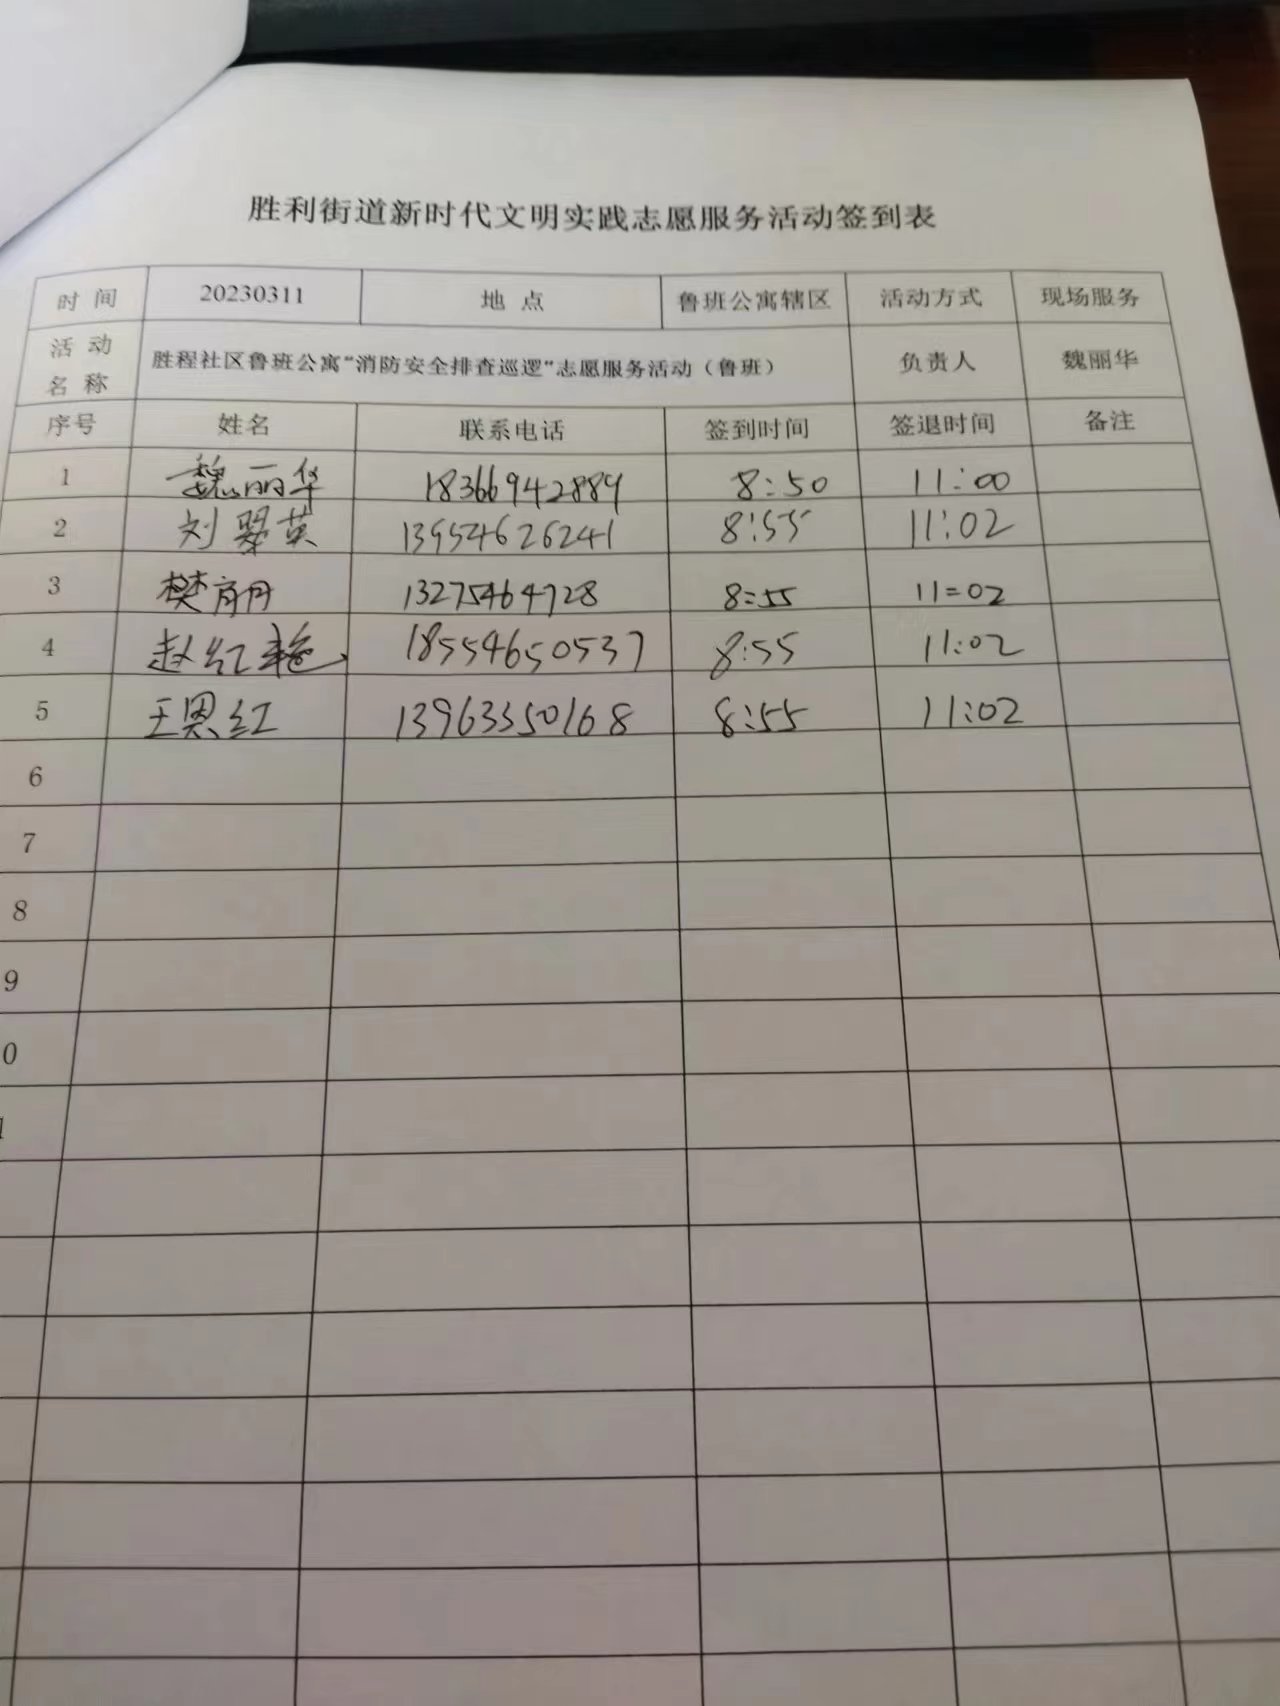 胜利街道新时代文明实践志愿服务活动签到表
时间 20230311 地点 鲁班公寓辖区 活动方式 现场服务
活动名称 胜程社区鲁班公寓“消防安全排查巡逻”志愿服务活动（鲁班） 负责人 魏丽华
序号 姓名 联系电话 签到时间 签退时间 备注
1 魏丽华 18366942889 8:50 11:00
2 刘翠英 13954626241 8:55 11:02
3 樊 13275464728 8:55 11:02
4 赵红艳 18554650537 8:55 11:02
5 王恩红 13963350168 8:55 11:02
6
7
8
9
0